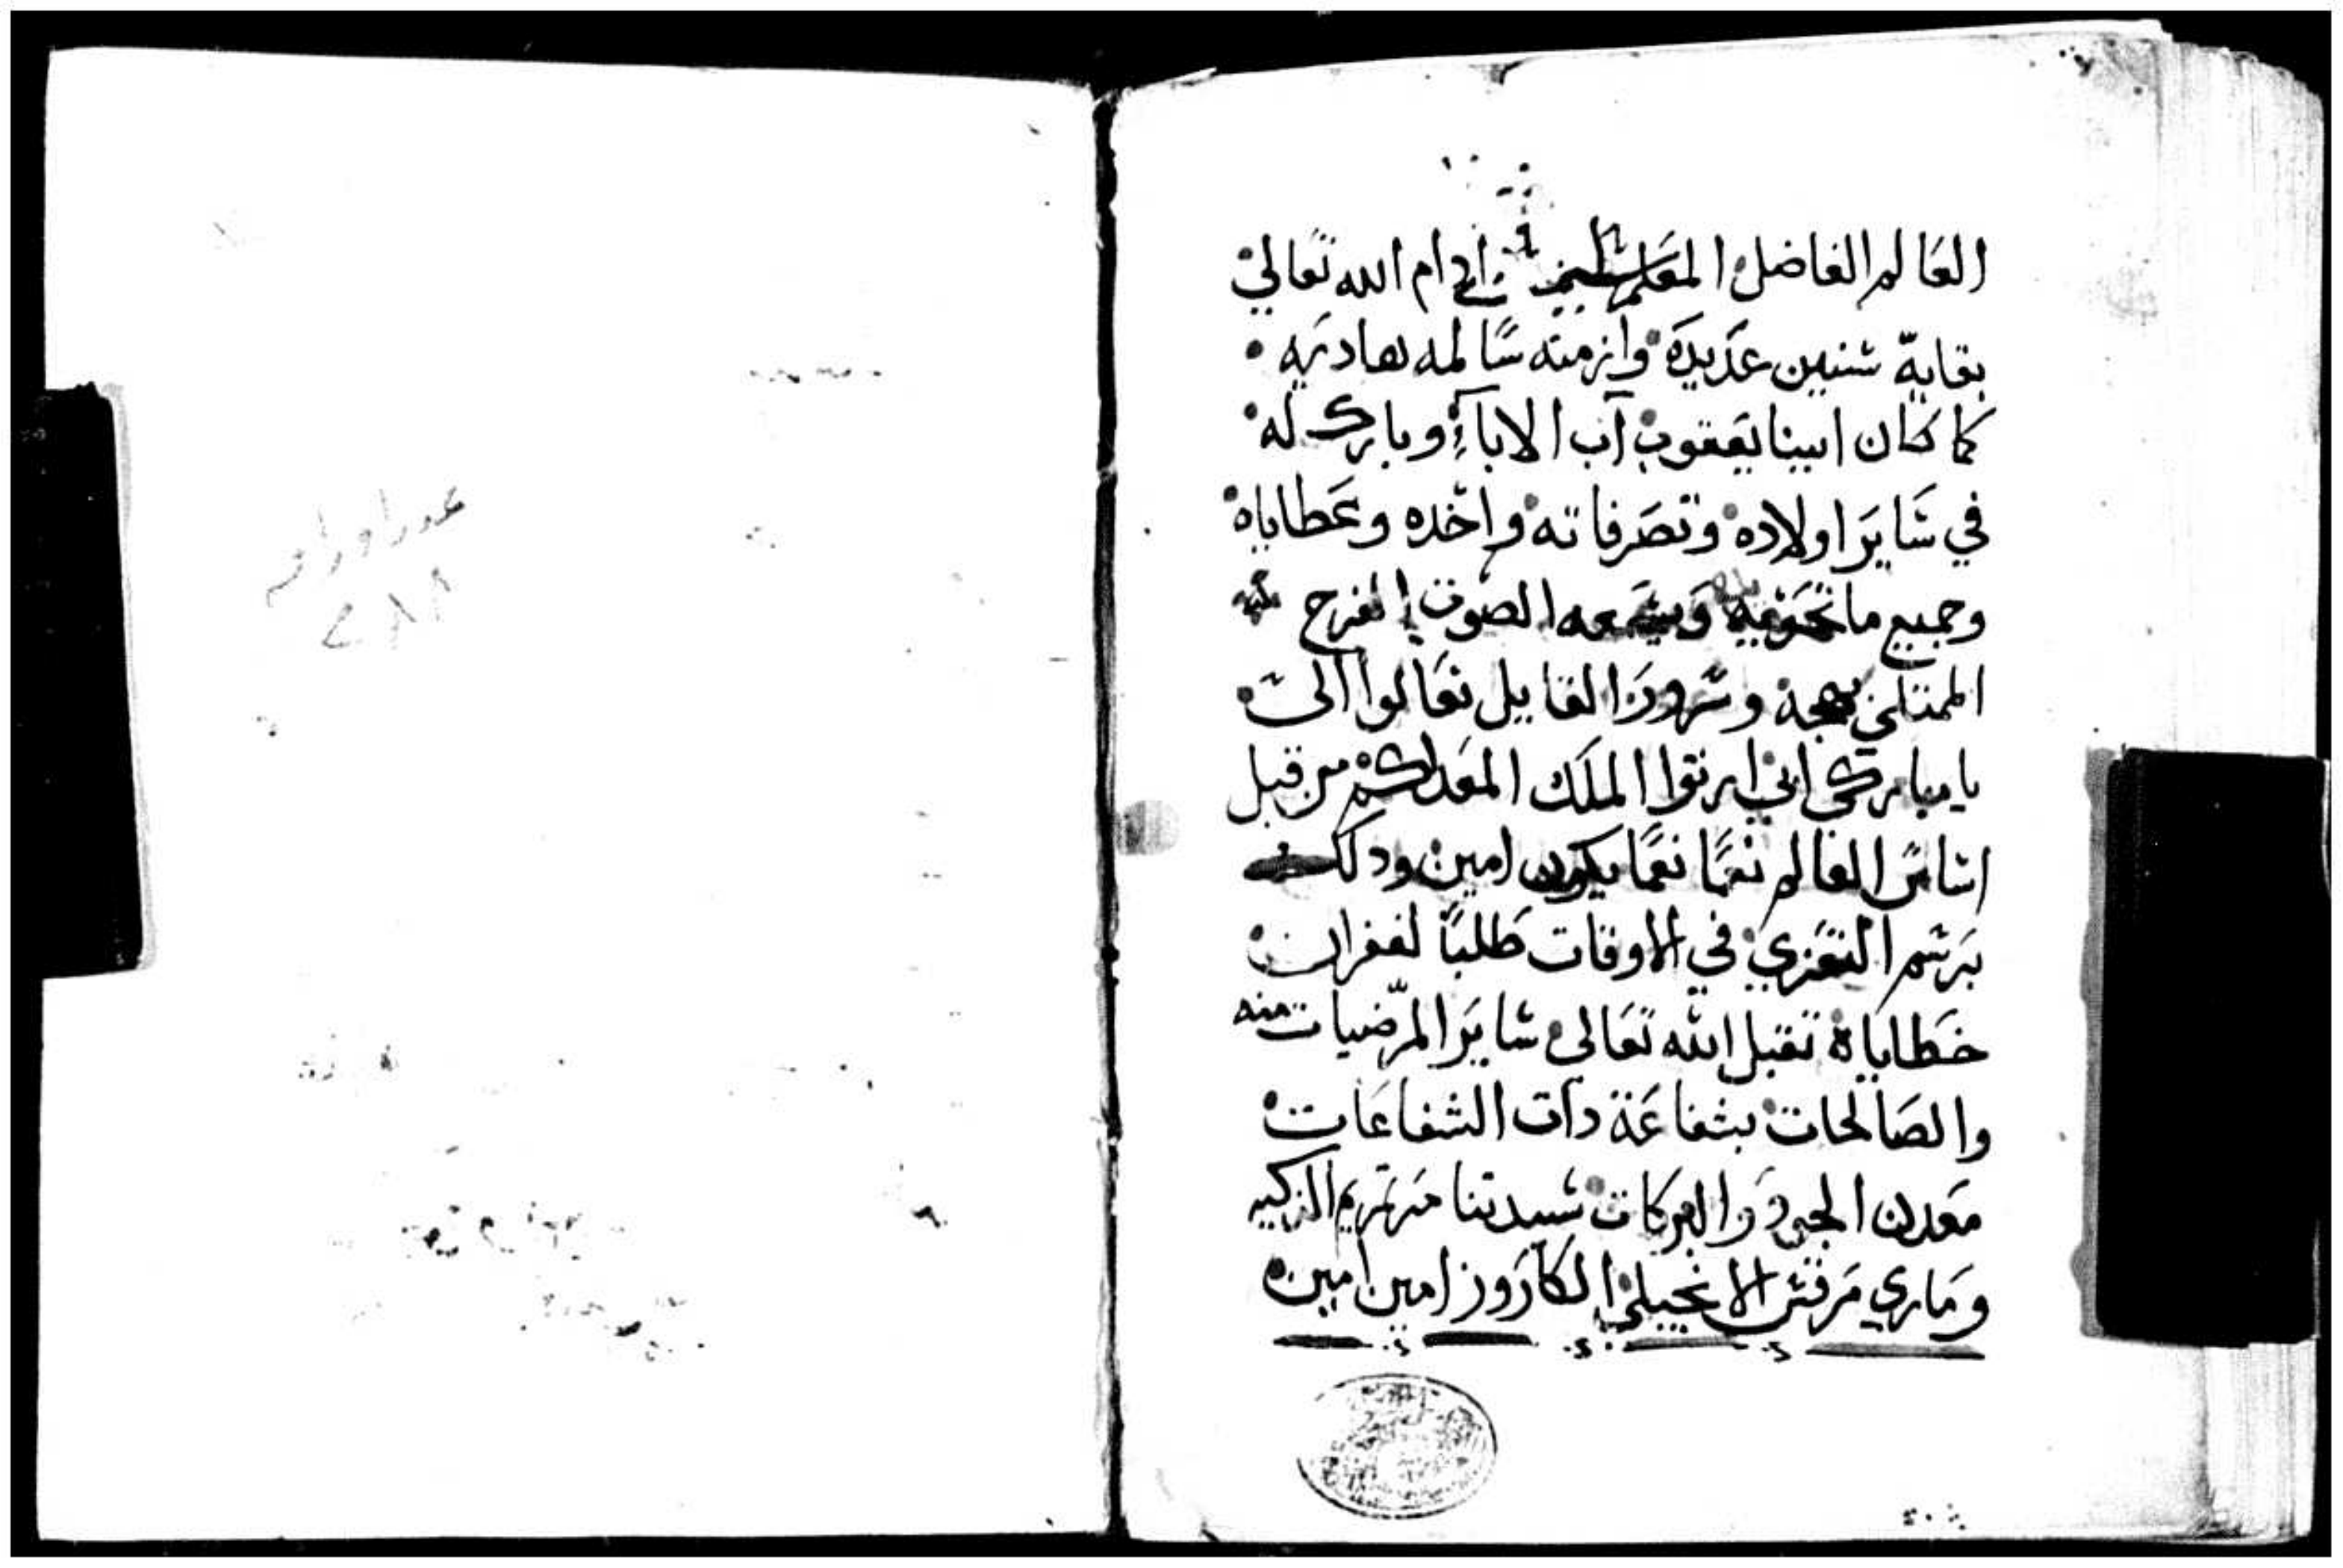 العالم الفاضل المعلم ادام الله تعالي
بقاية شنين عديدة وازمنه سالمه هاديه
كما كان ابينا يعقوب آب الاباء وبارك له
في شاير اولاده وتصرفاته واخده وعطاياه
وجميع ما تحويه ويشمعه الصوت الفرح
الممتلي بهجة وشرور القايل تعالوا الي
يا مباركي ابي ارتوا الملك المعد لكم من قبل
اشاش العالم نعما نعما يكون امين ودلك
برشم التعزي في الاوقات طلبا لغفران
خطاياه تقبل الله تعالي شاير المرضيات منه
والصالحات بشفاعة دات الشفاعات
معدن الجود والبركات شيدتنا مرتمريم الزكيه
وماري مرقش الانجيلي الكاروز امين امين